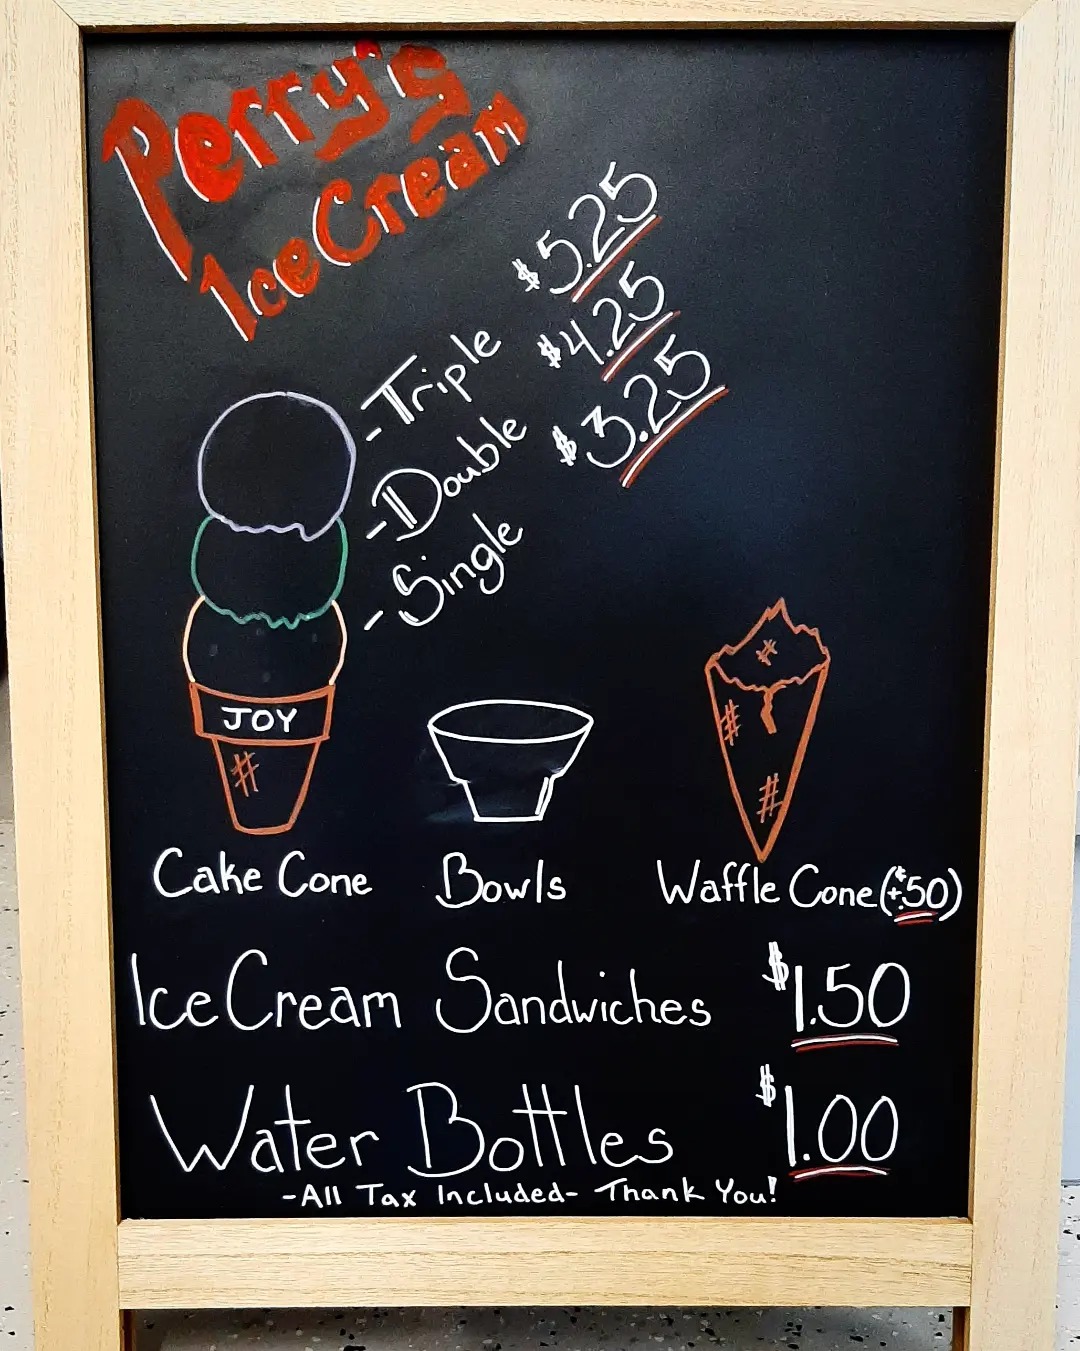 Perry's
Ice Cream
-Triple $5.25
-Double $4.25
-Single $3.25
JOY
Cake Cone Bowls Waffle Cone (+$.50)
Ice Cream Sandwiches $1.50
Water Bottles $1.00
-All Tax Included- Thank You!